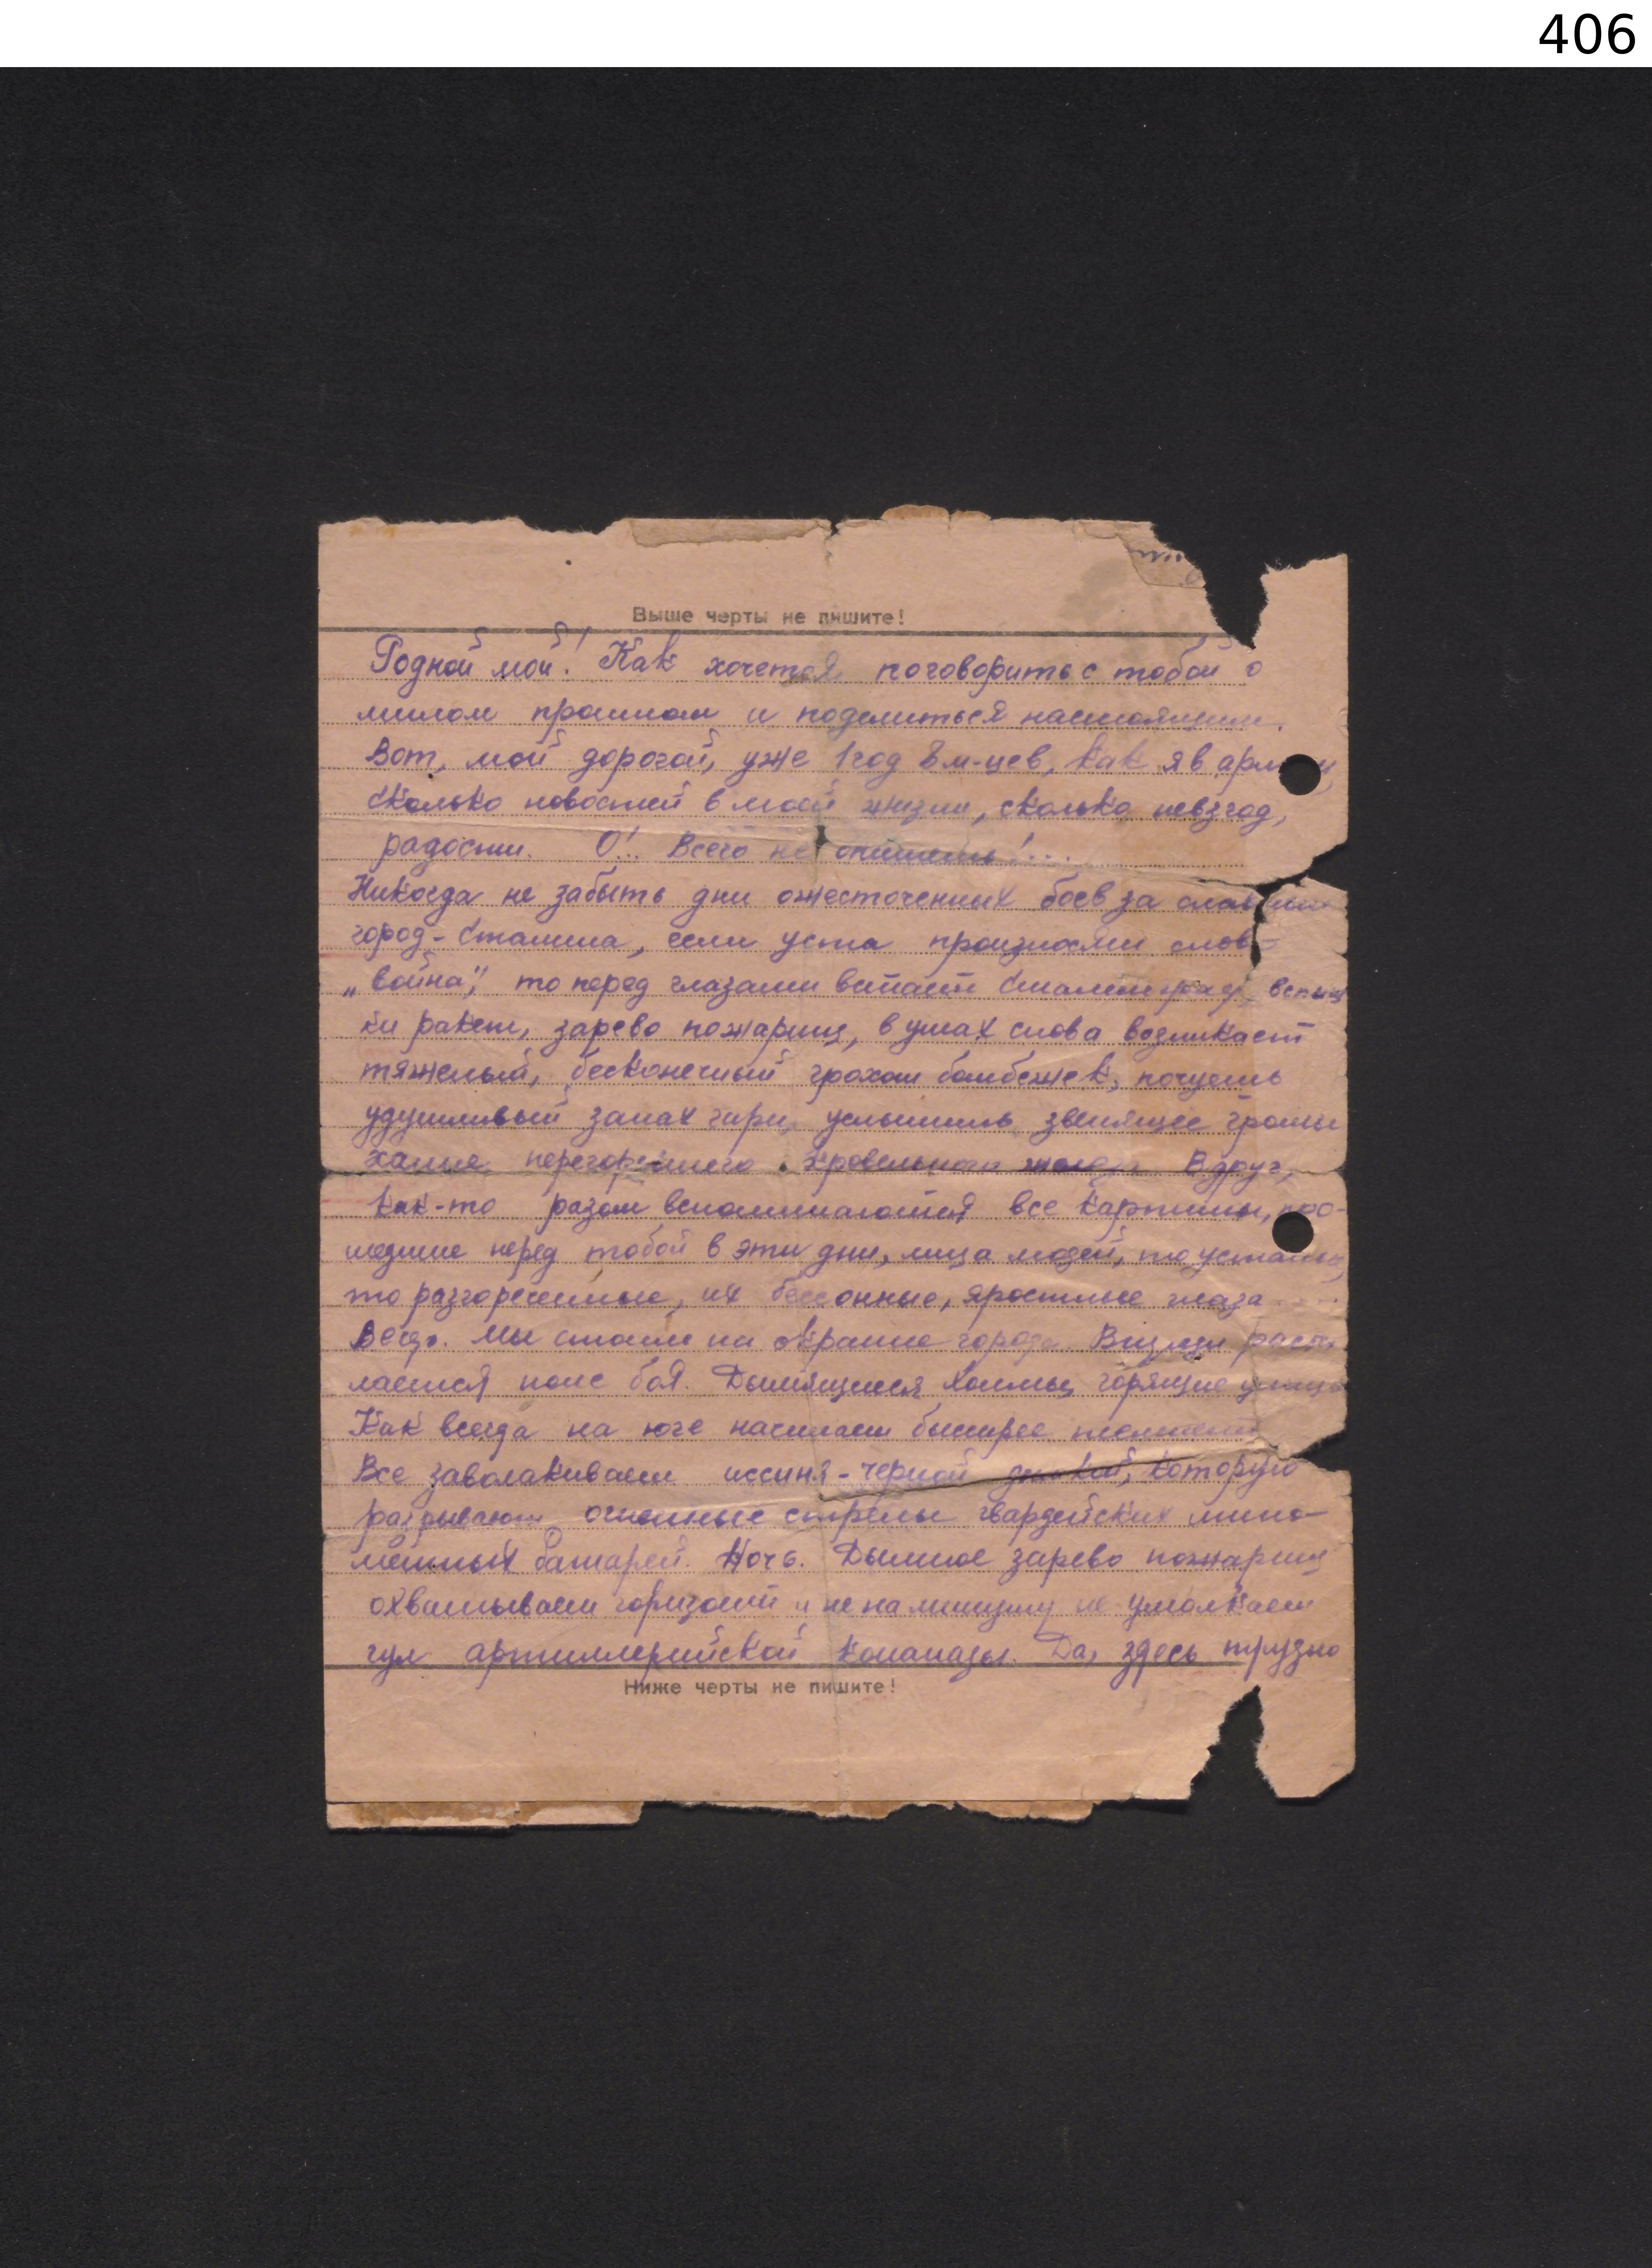 406
Выше черты не пишите!
Родной мой! Как хочется поговорить с тобой о
милом прошлом и поделиться настоящим.
Вот, мой дорогой, уже 1 год 8 м-цев, как я в
сколько новостей в моей жизни, сколько невзгод,
радости. О!.. Всего не опишешь!...
Никогда не забыть дни ожесточенных боев за
город-Сталина, если уста произносят слов-
„война", то перед глазами встает Сталинград, вспыш
ки ракет, зарево пожарищ, в ушах снова возникает
тяжелый, бесконечный грохот бомбежек, почуешь
удушливый запах гари, услышишь звенящее громы
хание перегоревшего кровельного железа. Вдруг,
как-то разом вспоминаются все картины, про-
шедшие перед тобой в эти дни, лица людей, то усталые,
то разгоряченные, их бессонные, яростные глаза
Мы стоим на окраине города. Внизу
лается поле боя. Дымящиеся холмы, горящие улицы
Как всегда на юге начинает быстрее темнеть
Все заволакивает иссиня-черной дымкой, которую
разрывают огненные стрелы гвардейских мино-
метных батарей. Ночь. Дымное зарево пожарищ
охватывает горизонт и не на минуту не умолкает
гул артиллерийской канонады. Да, здесь трудно
Ниже черты не пишите!